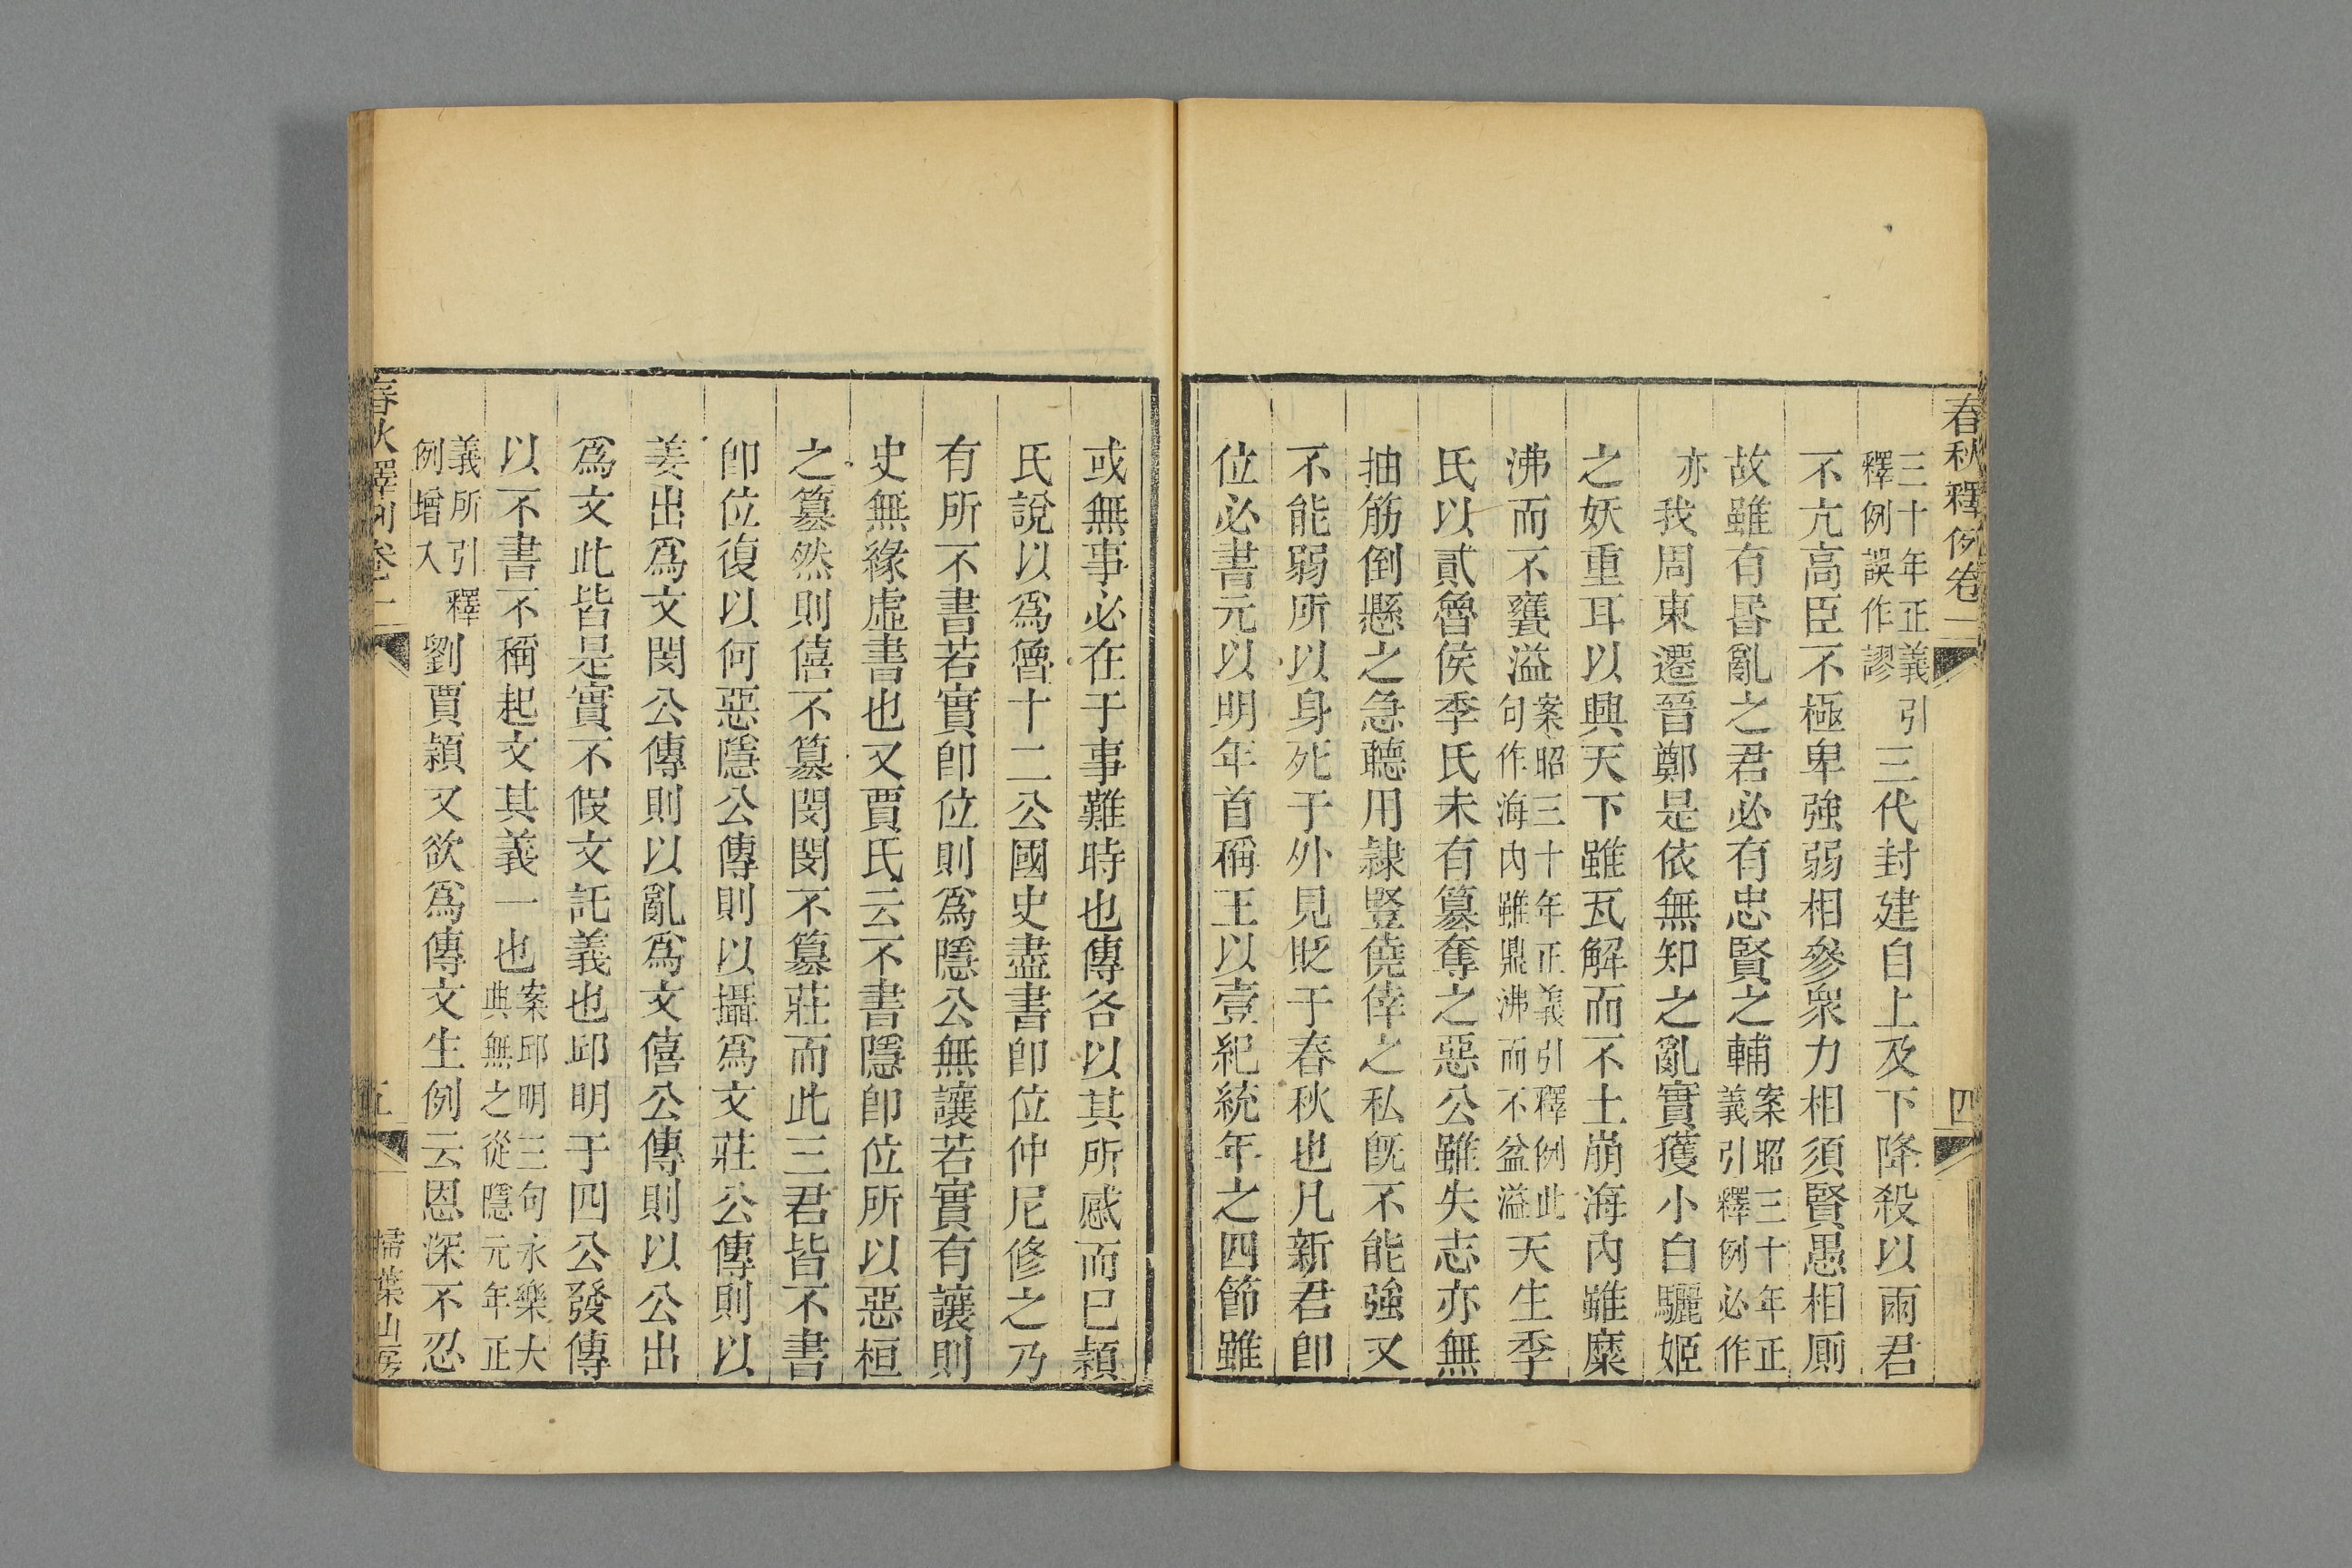 春秋釋例卷一
四
三十年正義引
釋例誤作謬
三代封建自上及下降殺以兩君
不亢高臣不極卑強弱相參衆力相須賢愚相厠
故雖有昬亂之君必有忠賢之輔
案昭三十年正
義引釋例必作
亦
我周東遷晉鄭是依無知之亂實獲小白驪姬
之妖重耳以興天下雖瓦解而不土崩海內雖糜
沸而不甕溢
案昭三十年正義引釋例此
句作海內雖鼎沸而不盆溢
天生季
氏以貳魯侯季氏未有篡奪之惡公雖失志亦無
抽筋倒懸之急聽用隸豎僥倖之私旣不能強又
不能弱所以身死于外見貶于春秋也凡新君卽
位必書元以明年首稱王以壹紀統年之四節雖
或無事必在于事難時也傳各以其所感而已潁
氏說以爲魯十二公國史盡書卽位仲尼修之乃
有所不書若實卽位則爲隱公無讓若實有讓則
史無緣虛書也又賈氏云不書隱卽位所以惡桓
之篡然則僖不篡閔閔不篡莊而此三君皆不書
卽位復以何惡隱公傳則以攝爲文莊公傳則以
姜出爲文閔公傳則以亂爲文僖公傳則以公出
爲文此皆是實不假文託義也邱明于四公發傳
以不書不稱起文其義一也
案邱明三句永樂大
典無之從隱元年正
義所引釋
例增入
劉賈潁又欲爲傳文生例云恩深不忍
春秋釋例卷一
五
掃葉山房